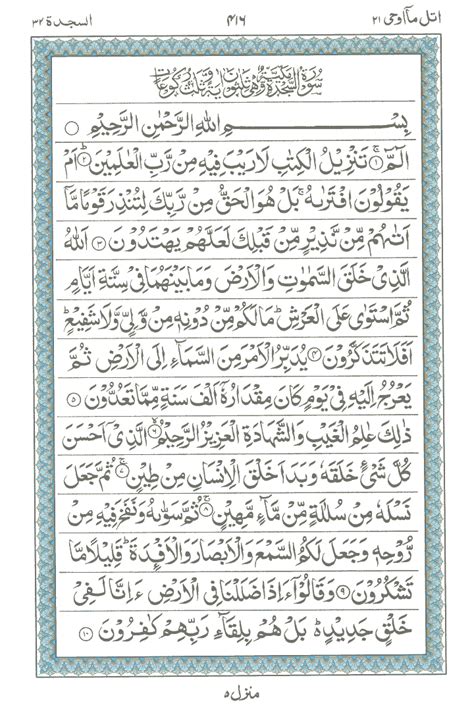 اتل ما اوحی ۲۱ ۴۱۶ السجدة ۳۲
سُوْرَةُ السَّجْدَةِ مَكِّيَّةٌ وَهِيَ ثَلٰثُوْنَ اٰيَةً وَّثَلٰثُ رُكُوْعَاتٍ
بِسْمِ اللهِ الرَّحْمٰنِ الرَّحِيْمِ ○
الٓمّٓ ۚ﴿۱﴾ تَنْزِيْلُ الْكِتٰبِ لَا رَيْبَ فِيْهِ مِنْ رَّبِّ الْعٰلَمِيْنَ ؕ﴿۲﴾ اَمْ
يَقُوْلُوْنَ افْتَرٰىهُ ۚ بَلْ هُوَ الْحَقُّ مِنْ رَّبِّكَ لِتُنْذِرَ قَوْمًا مَّاۤ
اَتٰىهُمْ مِّنْ نَّذِيْرٍ مِّنْ قَبْلِكَ لَعَلَّهُمْ يَهْتَدُوْنَ ﴿۳﴾ اَللهُ
الَّذِيْ خَلَقَ السَّمٰوٰتِ وَالْاَرْضَ وَمَا بَيْنَهُمَا فِيْ سِتَّةِ اَيَّامٍ
ثُمَّ اسْتَوٰى عَلَى الْعَرْشِ ؕ مَا لَكُمْ مِّنْ دُوْنِهٖ مِنْ وَّلِيٍّ وَّلَا شَفِيْعٍ ؕ
اَفَلَا تَتَذَكَّرُوْنَ ﴿۴﴾ يُدَبِّرُ الْاَمْرَ مِنَ السَّمَآءِ اِلَى الْاَرْضِ ثُمَّ
يَعْرُجُ اِلَيْهِ فِيْ يَوْمٍ كَانَ مِقْدَارُهٗۤ اَلْفَ سَنَةٍ مِّمَّا تَعُدُّوْنَ ﴿۵﴾
ذٰلِكَ عٰلِمُ الْغَيْبِ وَالشَّهَادَةِ الْعَزِيْزُ الرَّحِيْمُ ۙ﴿۶﴾ الَّذِيْۤ اَحْسَنَ
كُلَّ شَيْءٍ خَلَقَهٗ وَبَدَاَ خَلْقَ الْاِنْسَانِ مِنْ طِيْنٍ ۚ﴿۷﴾ ثُمَّ جَعَلَ
نَسْلَهٗ مِنْ سُلٰلَةٍ مِّنْ مَّآءٍ مَّهِيْنٍ ۚ﴿۸﴾ ثُمَّ سَوّٰىهُ وَنَفَخَ فِيْهِ مِنْ
رُّوْحِهٖ وَجَعَلَ لَكُمُ السَّمْعَ وَالْاَبْصَارَ وَالْاَفْـِٕدَةَ ؕ قَلِيْلًا مَّا
تَشْكُرُوْنَ ﴿۹﴾ وَقَالُوْۤا ءَاِذَا ضَلَلْنَا فِي الْاَرْضِ ءَاِنَّا لَفِيْ
خَلْقٍ جَدِيْدٍ ؕ بَلْ هُمْ بِلِقَآءِ رَبِّهِمْ كٰفِرُوْنَ ﴿۱۰﴾
منزل ۵